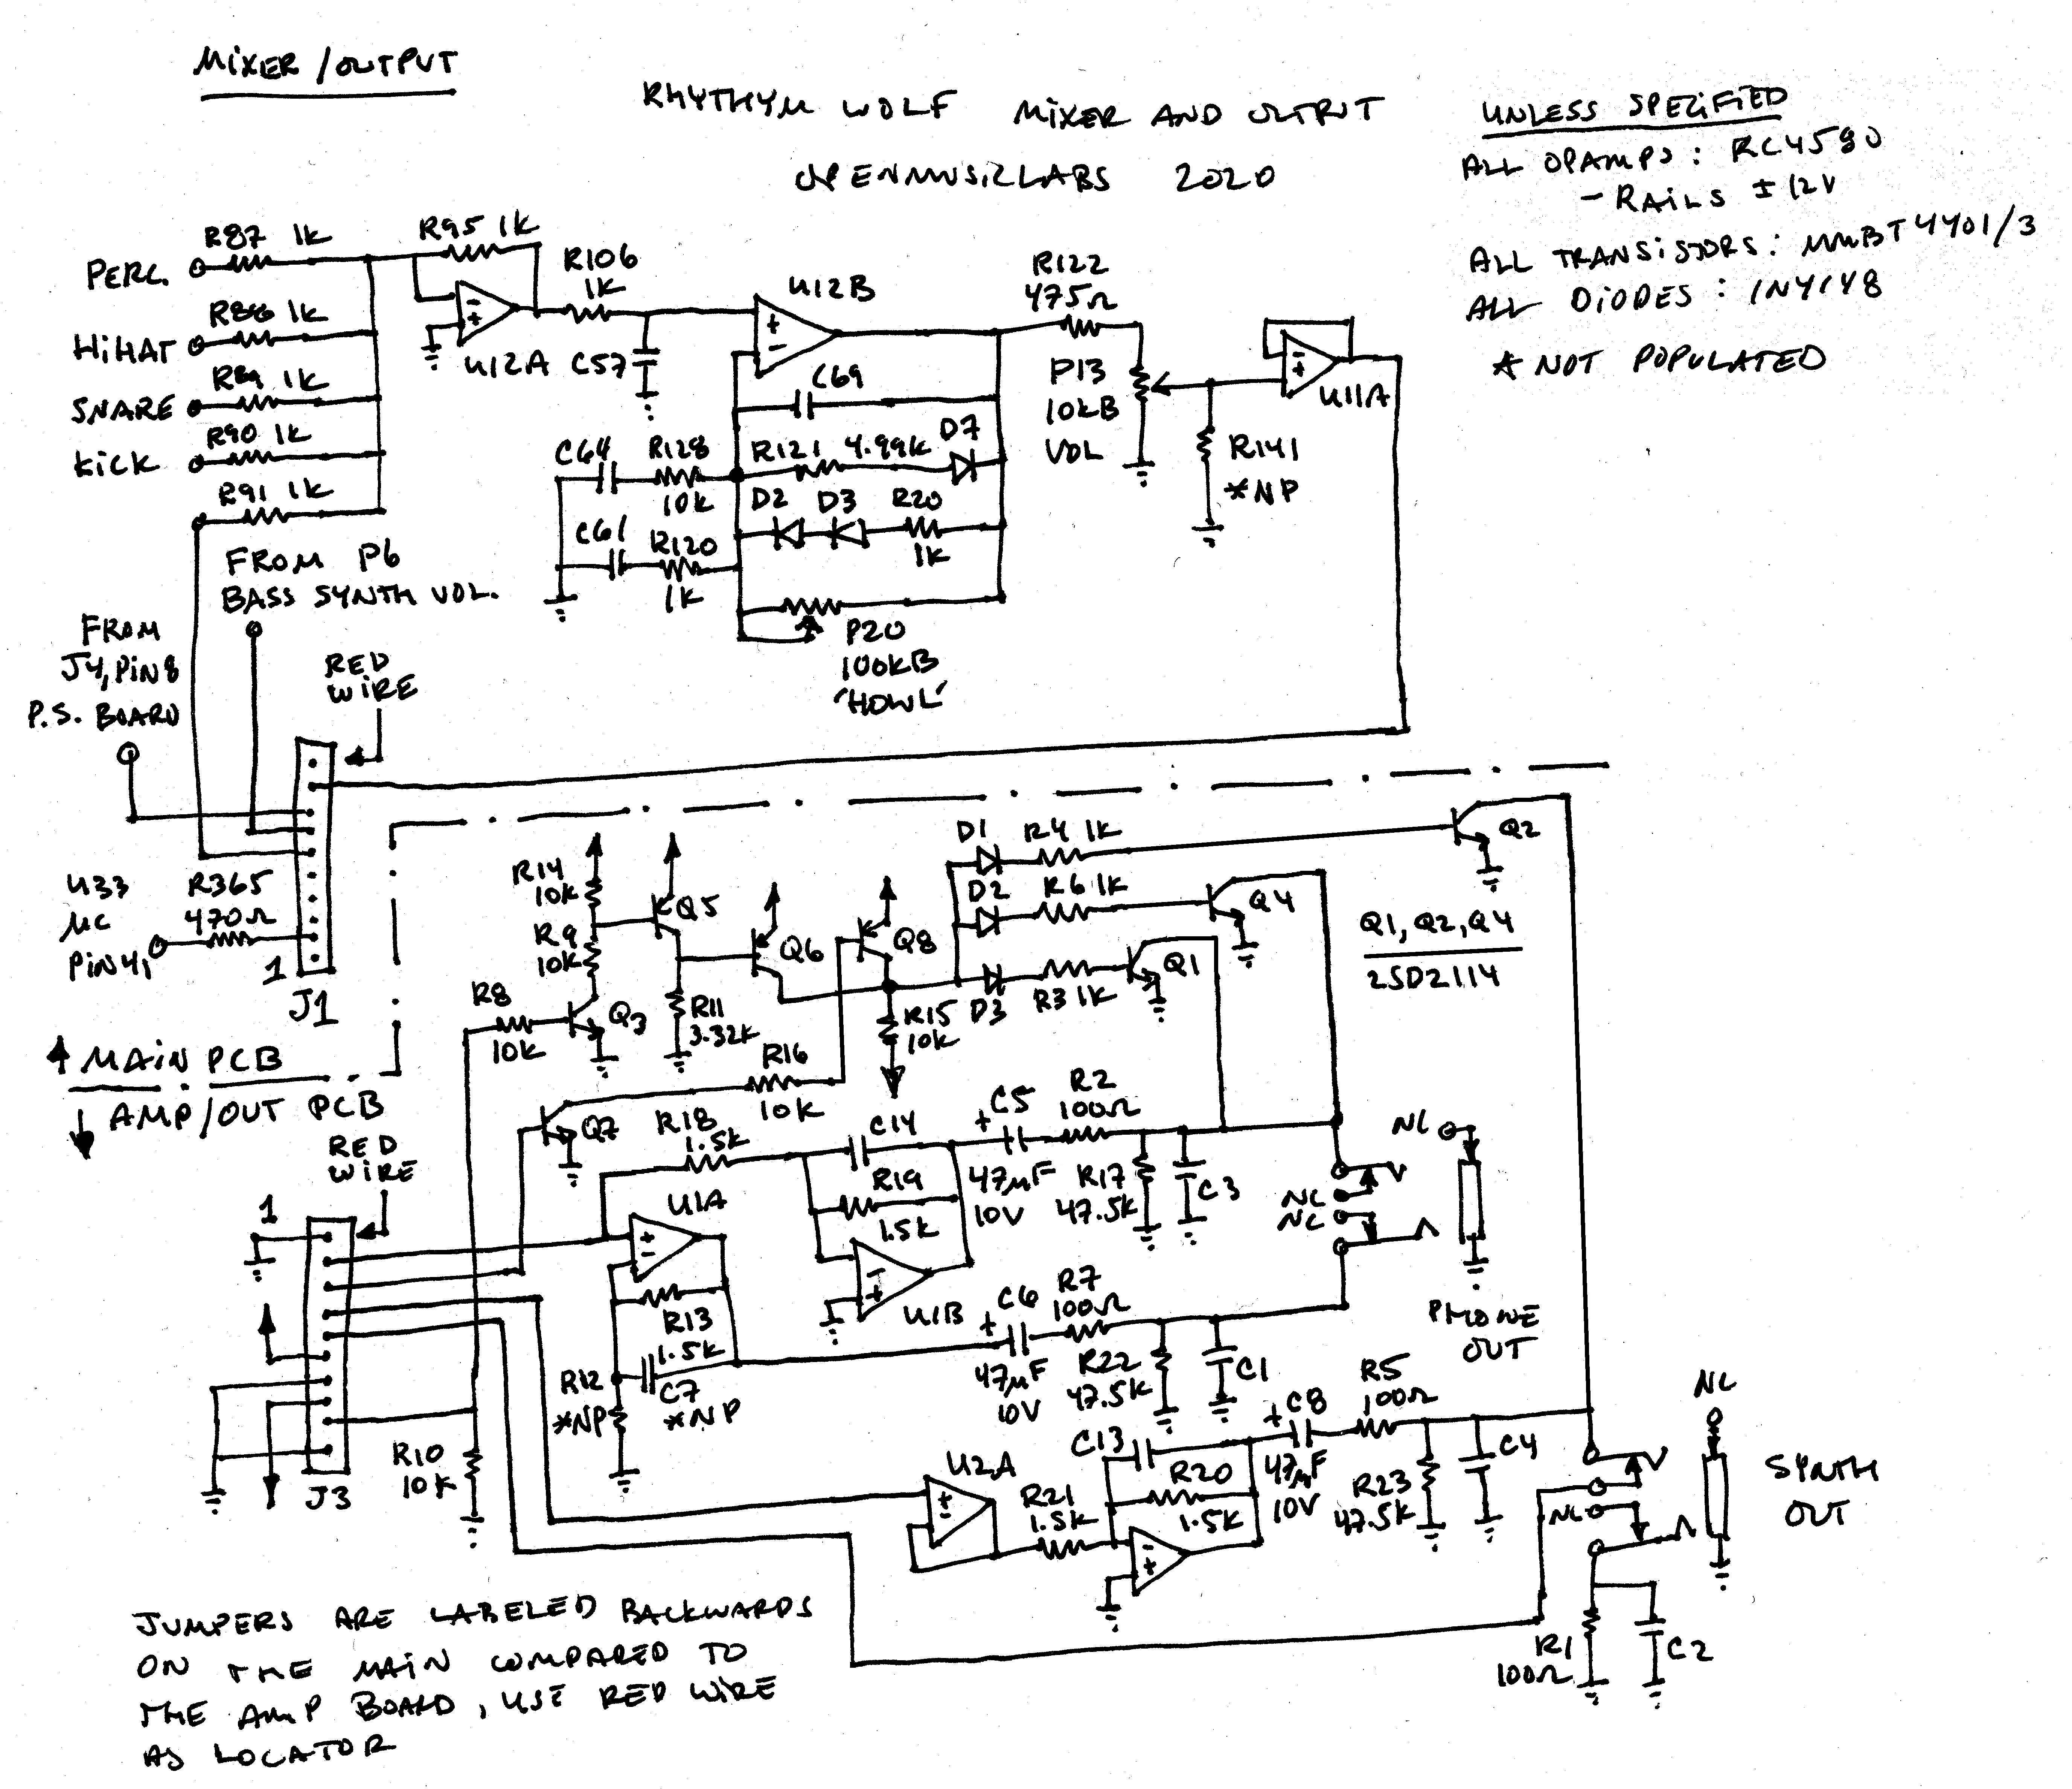 MIXER/OUTPUT
RHYTHYM WOLF MIXER AND OUTPUT
OPENMUSICLABS 2020
UNLESS SPECIFIED
ALL OPAMPS: RC4580
- RAILS ±12V
ALL TRANSISTORS: MMBT4401/3
ALL DIODES: 1N4148
* NOT POPULATED
PERC.
R87 1K
HIHAT
R88 1K
SNARE
R89 1K
KICK
R90 1K
R91 1K
R95 1K
- +
U12A
R106
1K
C57
+ -
U12B
C69
C64
R128
10K
R121 4.99K
D7
D2 D3 R20
1K
C61
R120
1K
P20
100KB
'HOWL'
R122
475Ω
P13
10KB
VOL
R141
*NP
- +
U11A
FROM P6
BASS SYNTH VOL.
FROM
J4, PIN 8
P.S. BOARD
RED
WIRE
U33
µC
PIN 41
R365
470Ω
1
J1
↑ MAIN PCB
↓ AMP/OUT PCB
R14
10K
R9
10K
Q5
Q6
Q8
R8
10K
Q3
R11
3.32K
R15
10K
R16
10K
Q7
D1 R4 1K
Q2
D2 R6 1K
Q4
D3 R3 1K
Q1
Q1, Q2, Q4
2SD2114
RED
WIRE
1
J3
R18
1.5K
C14
R19
1.5K
U1A
+ -
R13
1.5K
R12
*NP
C7
*NP
R10
10K
- +
U1B
+ C5
47µF
10V
R2
100Ω
R17
47.5K
C3
NC
NC
NC
PHONE
OUT
+ C6
47µF
10V
R7
100Ω
R22
47.5K
C1
U2A
+ -
R21
1.5K
C13
R20
1.5K
- +
+ C8
47µF
10V
R5
100Ω
R23
47.5K
C4
NC
NC
SYNTH
OUT
R1
100Ω
C2
JUMPERS ARE LABELED BACKWARDS
ON THE MAIN COMPARED TO
THE AMP BOARD, USE RED WIRE
AS LOCATOR